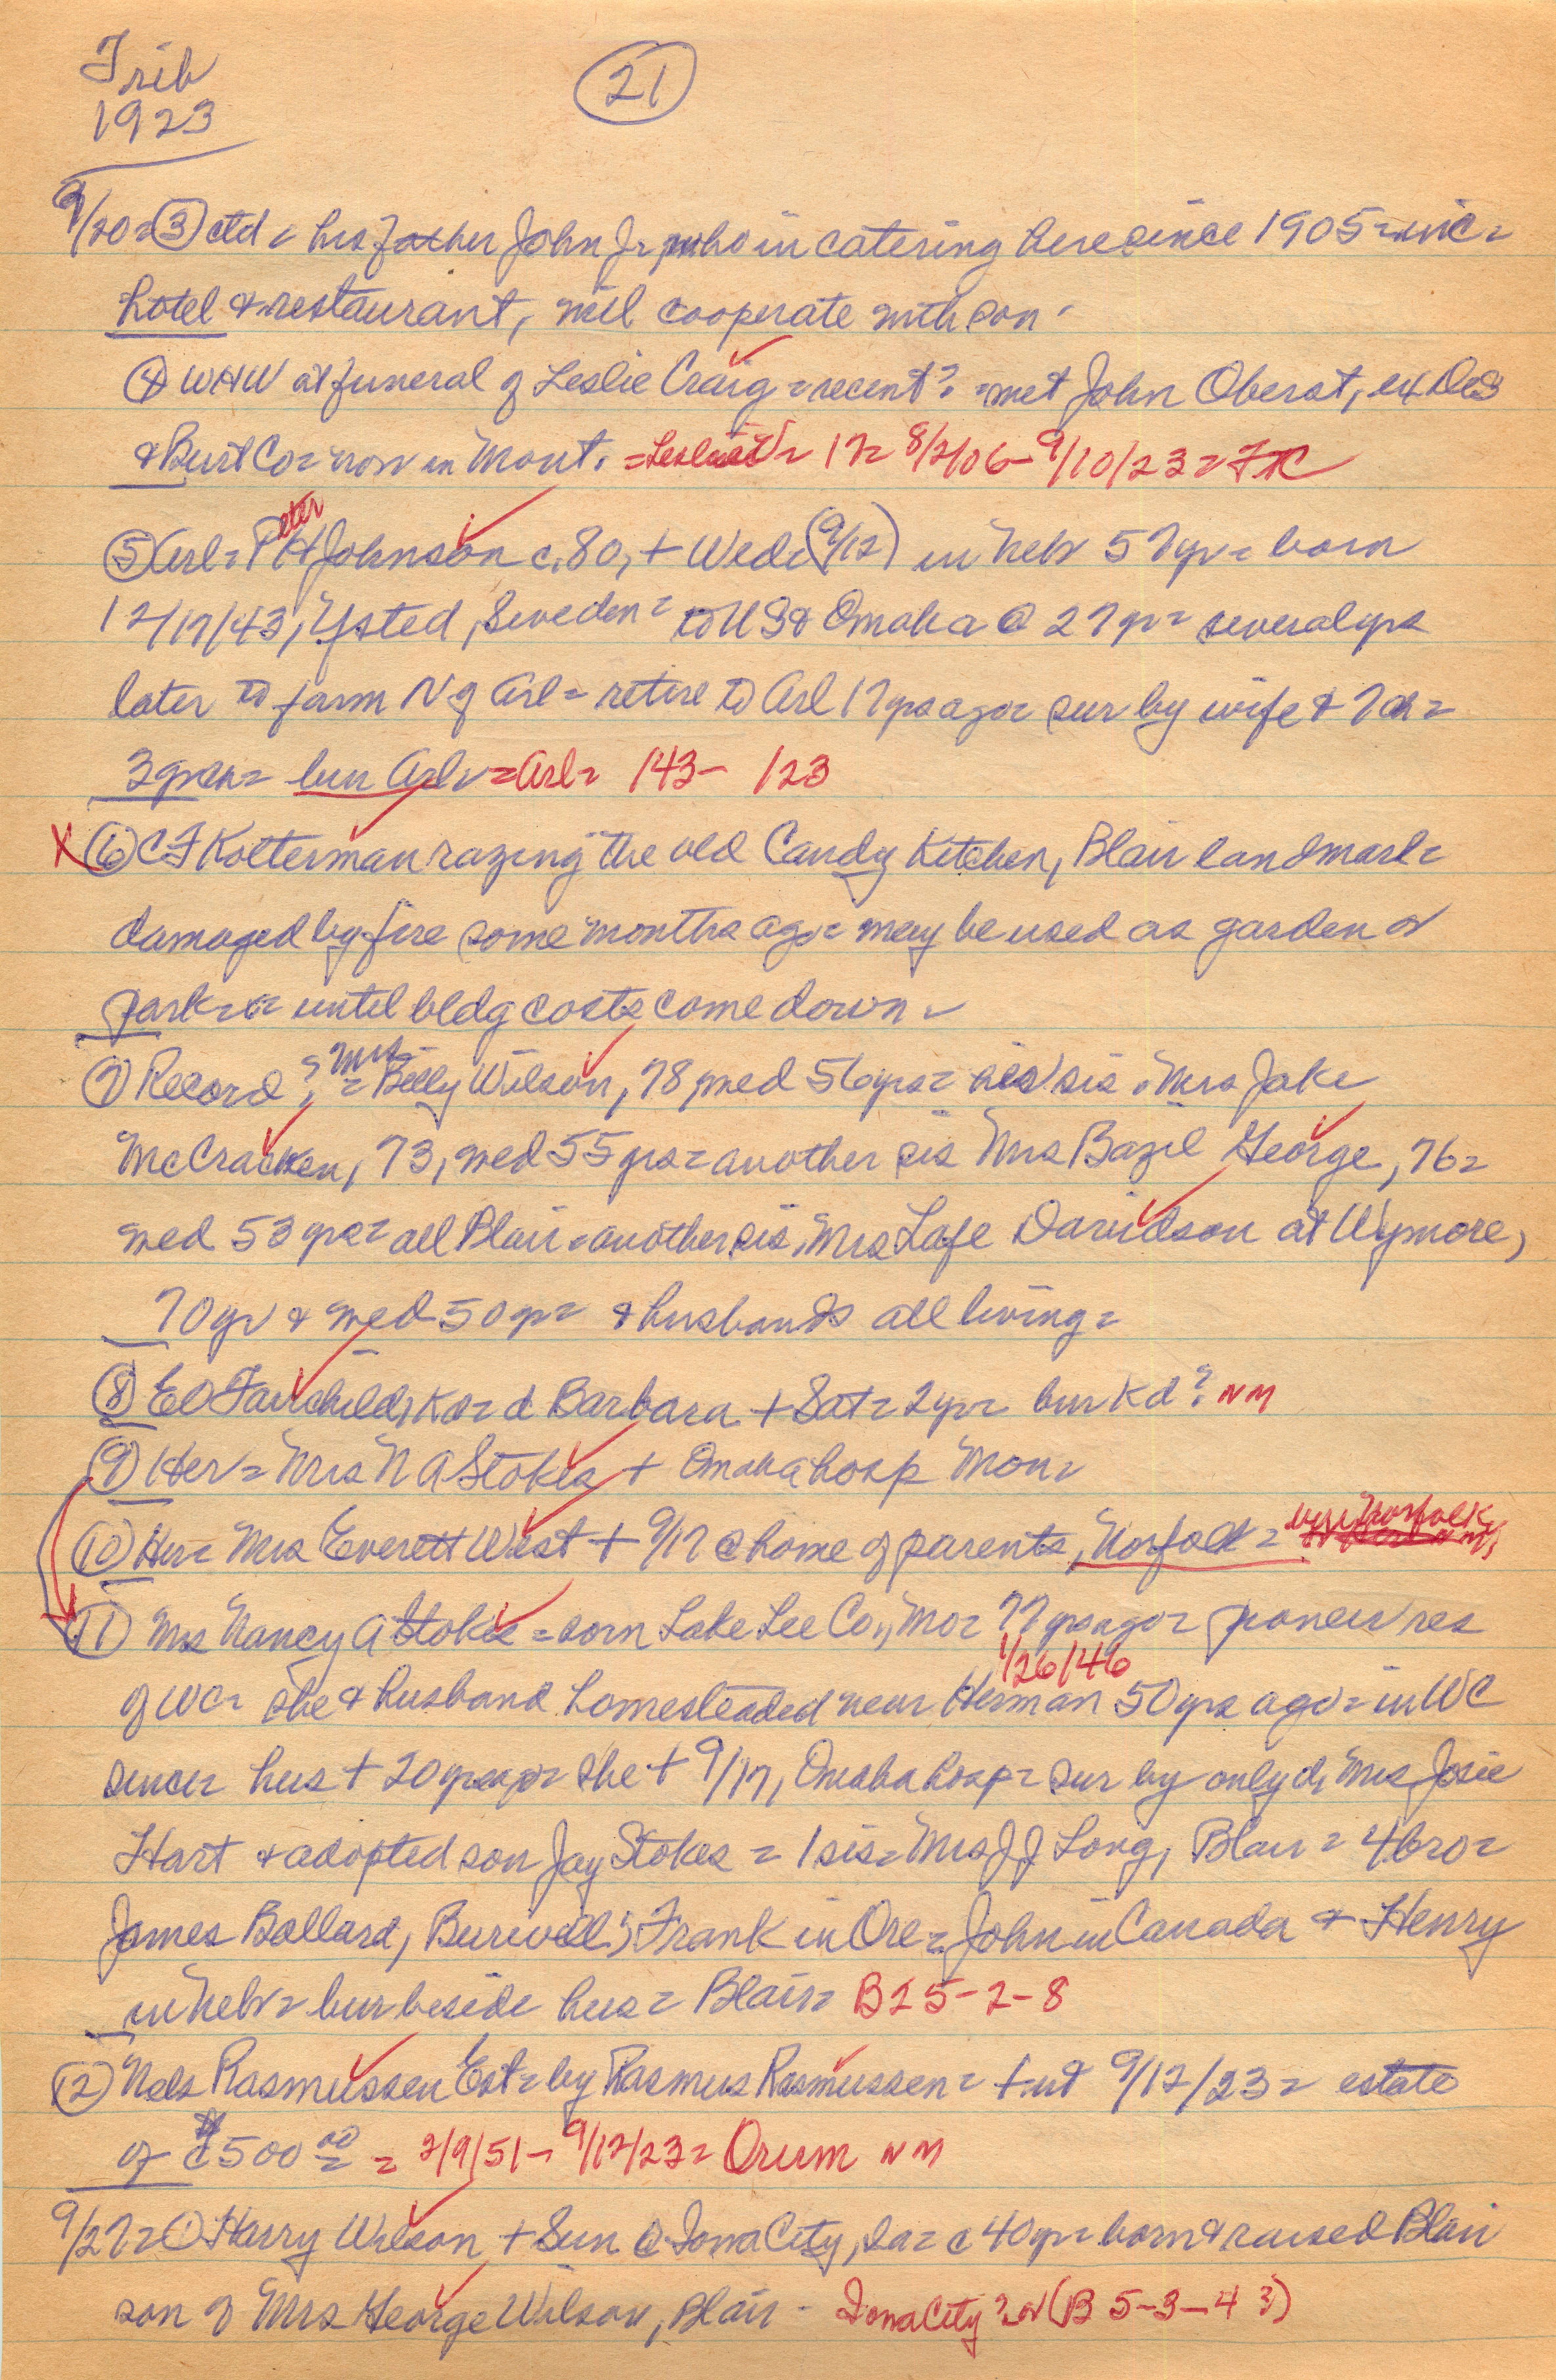 Trib
1923
(21)
9/20 = (3) ctd = his father John Jr, who in catering here since 1905 = inc =
hotel & restaurant, will cooperate with son -
(4) WHW at funeral of Leslie Craig = recent? = met John Oberst, ex DeS
& Burt Co = now in Mont. = 17 = 8/2/06 - 9/10/23 = FC
(5) Arl = Peter H Johnson c. 80, + Wed. (9/12) in Nebr 57 yr = born
12/17/43, Ysted, Sweden = to US & Omaha @ 27 yr = several yrs
later to farm N of Arl = retire to Arl 17 yrs ago = sur by wife & 7 ch =
3 grch = bur Arl = Arl = 143 - 123
X (6) C F Kolterman razing the old Candy Kitchen, Blair landmark =
damaged by fire some months ago = may be used as garden or
park = until bldg costs come down -
(7) Record? = Mrs Billy Wilson, 78, med 56 yrs = sis, Mrs Jake
McCracken, 73, med 55 yrs = another sis Mrs Bazil George, 76 =
med 53 yrs = all Blair = another sis, Mrs Lafe Davidson at Wymore,
70 yr & med 50 yr = & husbands all living =
(8) Ed Fairchild, Kd = d Barbara + Sat = 2 yr = bur Kd? NM
(9) Her = Mrs N A Stokes + Omaha hosp Mon =
(10) Her = Mrs Everett West + 9/17 @ home of parents, Norfolk = Norfolk
(11) Mrs Nancy A Stokes = born Lake Lee Co., Mo = 77 yrs ago = pioneer res
1/26/46
of WC = she & husband homesteaded near Herman 50 yrs ago = in WC
since = hus + 20 yrs ago = she + 9/17, Omaha hosp = sur by only d, Mrs Josie
Hart & adopted son Jay Stokes = 1 sis = Mrs J J Long, Blair = 4 bro =
James Ballard, Burwell; Frank in Ore = John in Canada & Henry
in Nebr = bur beside hus = Blair = B 25-2-8
(12) Nels Rasmussen Est = by Rasmus Rasmussen = + int 9/12/23 = estate
of $500.00 = 2/9/51 - 9/12/23 = Orum NM
9/27 = (1) Harry Wilson + Sun @ Iowa City, Ia = c 40 yr = born & raised Blair
son of Mrs George Wilson, Blair - Iowa City? or (B 5-3-4?)